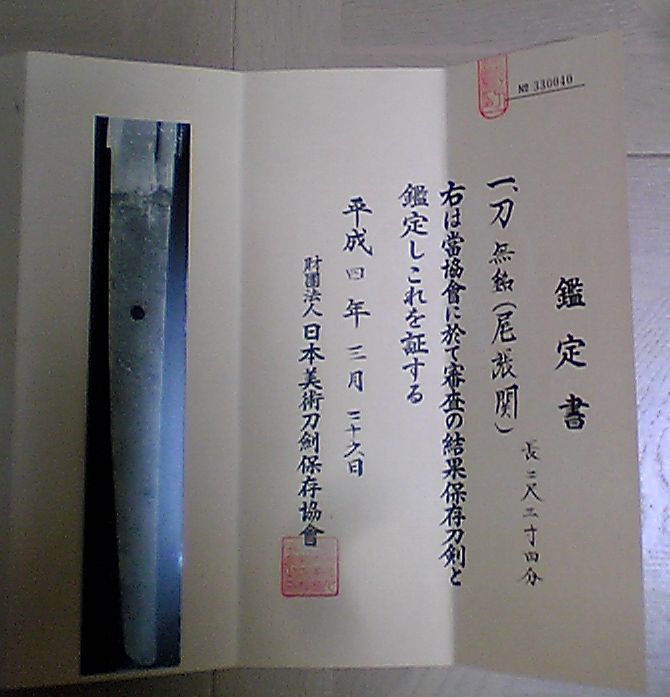 № 330040
鑑定書
一、刀 無銘(尾張関)
長二尺二寸四分
右は當協會に於て審査の結果保存刀剣と
鑑定しこれを証する
平成四年三月二十六日
財團法人日本美術刀剣保存協會